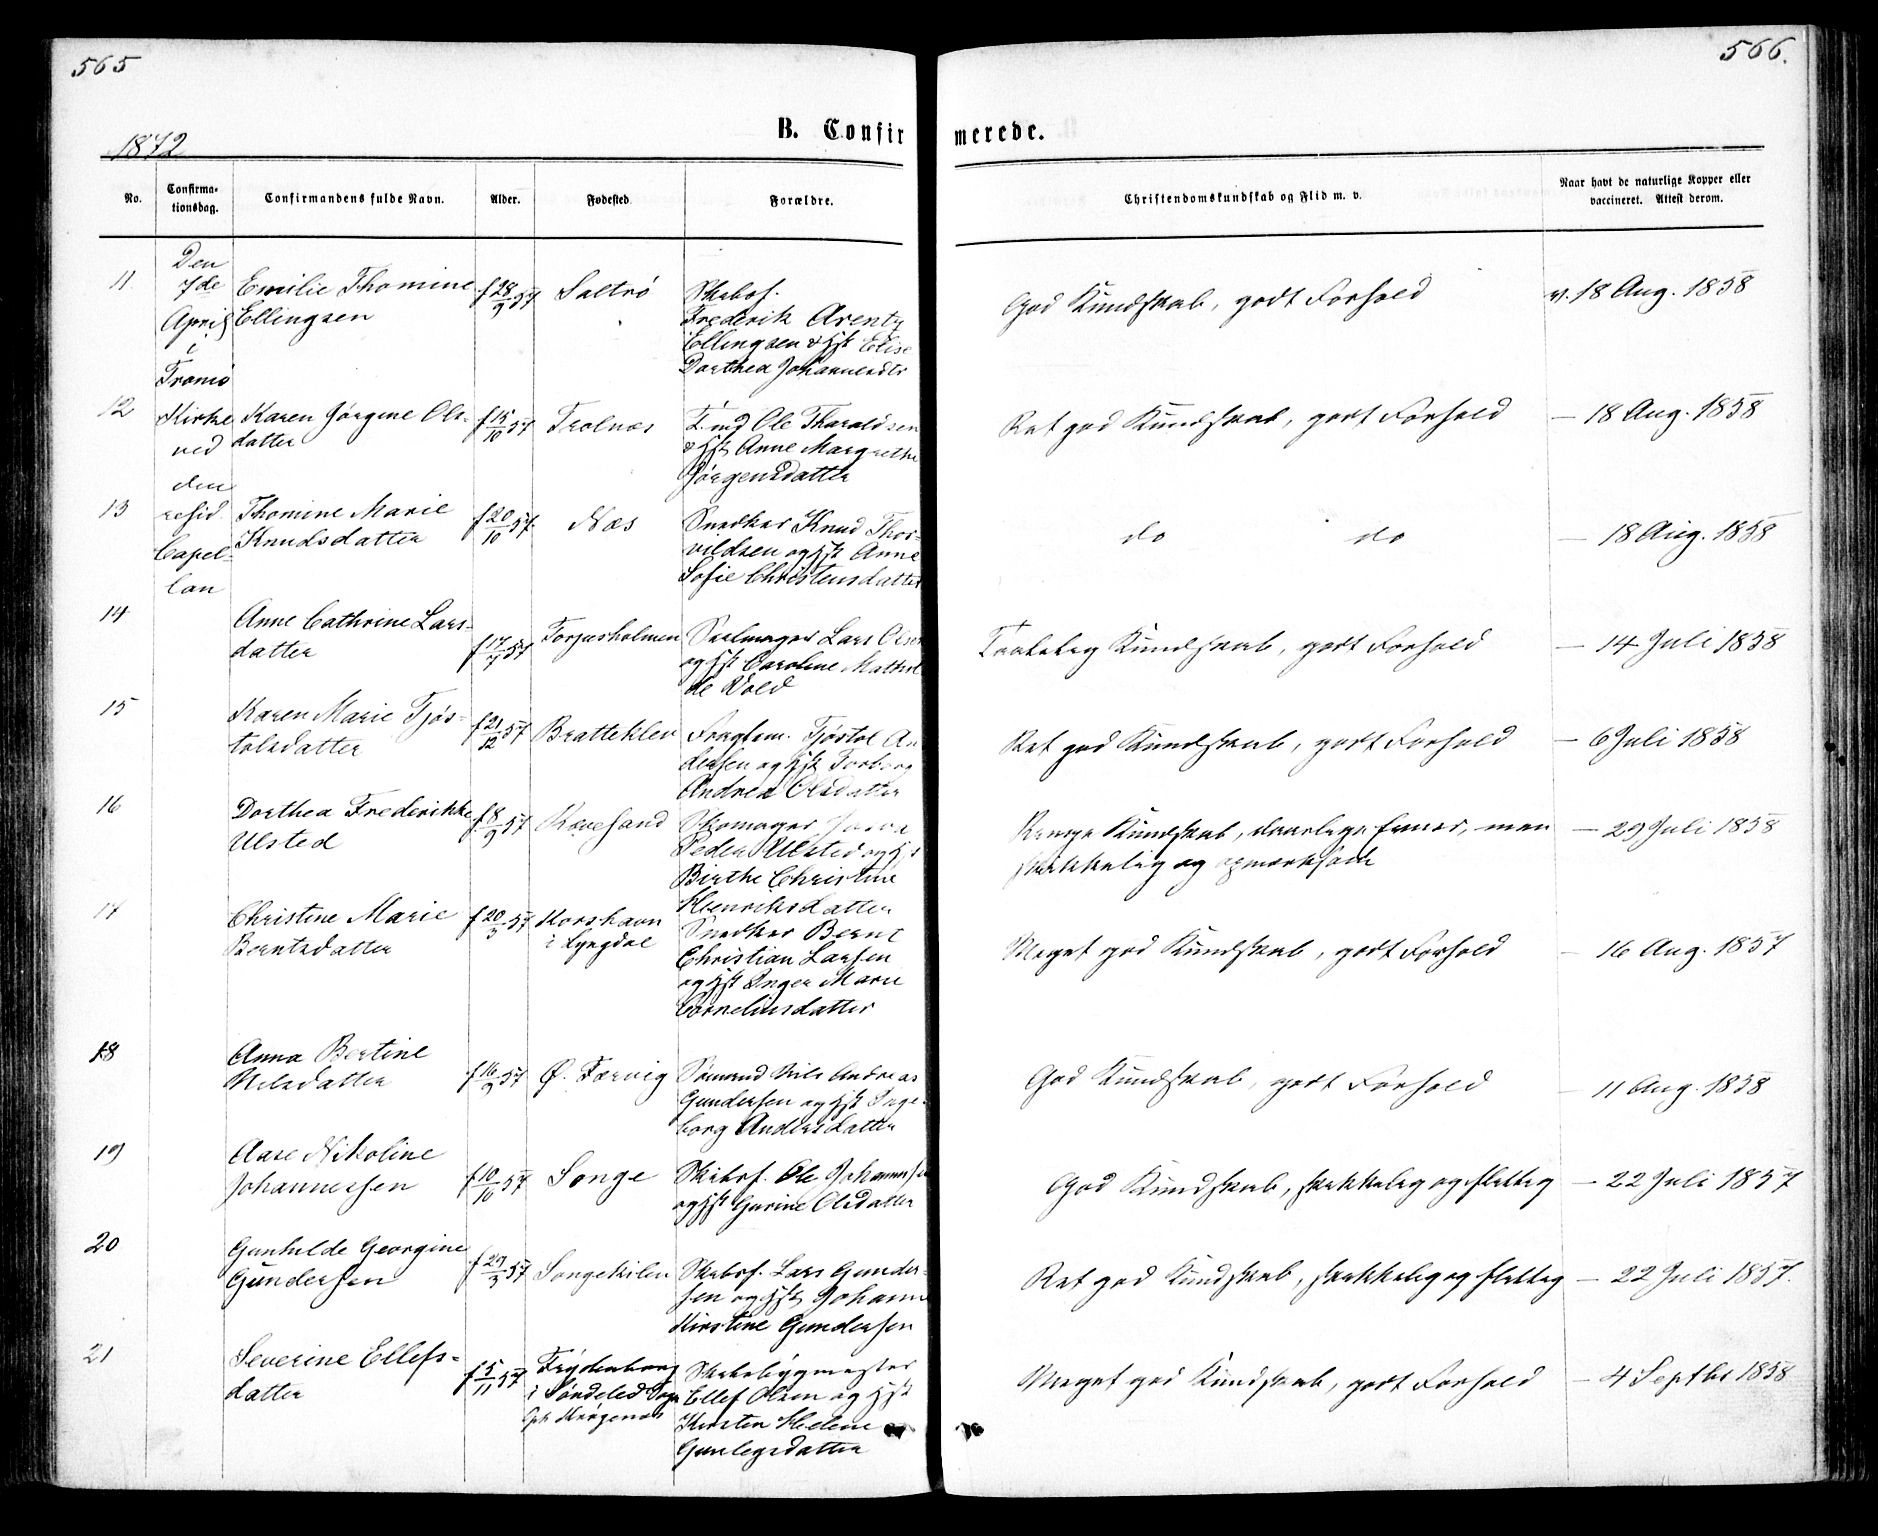 565
566.
B. Confirmerede.
1872
No.
Confirma-
tionsdag.
Confirmandens fulde Navn.
Alder.
Fødested
Forældre.
Christendomskundskab og Flid m. v.
Naar havt de naturlige Kopper eller
vaccineret. Attest derom.
Den
7de
April
i
Tromø
Kirke
ved
den
resid.
Capel-
lan
11
Emilie Thomine
Ellingsen
f 28/9 57
Saltrø
Skibsf.
Frederik Arentz
Ellingsen & Hst Elise
Dorthea Johannesdtr
God Kundskab, godt Forhold
v. 18 Aug. 1858
12
Karen Jørgine Ols-
datter
f 15/10 57
Trolnæs
Ole Tharaldsen
& Hst Anne Margrethe
Jørgensdatter
Ret god Kundskab, godt Forhold
— 18 Aug. 1858
13
Thomine Marie
Knudsdatter
f 20/10 57
Næs
Snedker Knud Thor-
vildsen og Hst Anne
Sofie Christensdatter
do do
— 18 Aug. 1858
14
Anne Cathrine Lars-
datter
f 17/7 57
Torjusholmen
Seilmager Lars Olsen
og Hst Caroline Mathil
de Vold
Taalelig Kundskab, godt Forhold
— 14 Juli 1858
15
Karen Marie Tjøs-
tolsdatter
f 21/12 57
Bratteklev
Tjøstol An
dersen og Hst Torborg
Andrea Olsdatter
Ret god Kundskab, godt Forhold
— 6 Juli 1858
16
Dorthea Frederikke
Ulsted
f 8/9 57
Revesand
Skomager
Peder Ulsted og Hst
Birthe Christine
Henriksdatter
Ringe Kundskab, daarlige Evner, men
skikkelig og opmærksom
— 29 Juli 1858
17
Christine Marie
Berntsdatter
f 20/3 57
Korshavn
i Lyngdal
Snedker Bernt
Christian Larsen
og Hst Inger Marie
Corneliusdatter
Meget god Kundskab, godt Forhold
— 16 Aug. 1857
18
Anna Bertine
Nilsdatter
f 16/9 57
Ø. Færvig
Sømand Nils Andreas
Gundersen og Hst Inge-
borg Andersdatter
God Kundskab, godt Forhold
— 11 Aug. 1858
19
Aase Nikoline
Johannessen
f 10/10 57
Songe
Skibsf. Ole Johannessen
og Hst Gurine Olsdatter
God Kundskab, skikkelig og flittig
— 22 Juli 1857
20
Gunhilde Georgine
Gundersen
f 29/3 57
Songekilen
Skibsf. Lars Gunder-
sen og Hst Johanne
Kirstine Gundersen
Ret god Kundskab, skikkelig og flittig
— 22 Juli 1857.
21
Severine Ellefs-
datter
f 5/11 57
Frydenborg
i Søndeled Sogn
Skibsbygmester
Ellef Olsen og Hst
Kirsten Helene
Gunlegsdatter
Meget god Kundskab, godt Forhold
— 4 Septbr 1858